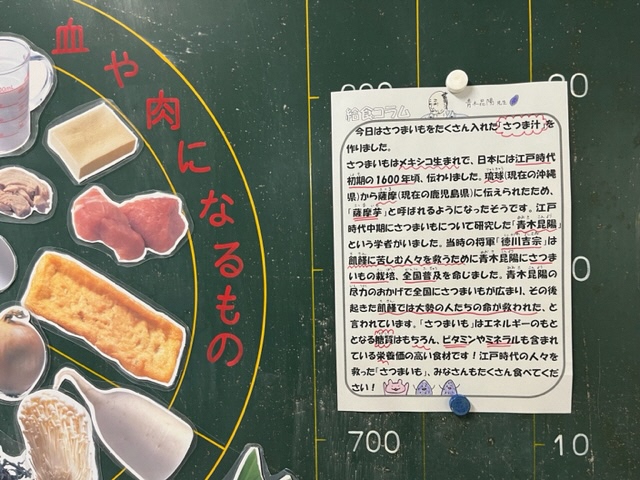 血や肉になるもの
給食コラム
青木昆陽先生
今日はさつまいもをたくさん入れた「さつま汁」を
作りました。
さつまいもはメキシコ生まれで、日本には江戸時代
初期の1600年頃、伝わりました。琉球(現在の沖縄
県)から薩摩(現在の鹿児島県)に伝えられたため、
「薩摩芋」と呼ばれるようになったそうです。江戸
時代中期にさつまいもについて研究した「青木昆陽」
という学者がいました。当時の将軍「徳川吉宗」は
飢饉に苦しむ人々を救うために青木昆陽にさつま
いもの栽培、全国普及を命じました。青木昆陽の
尽力のおかげで全国にさつまいもが広まり、その後
起きた飢饉では大勢の人たちの命が救われた、と
言われています。「さつまいも」はエネルギーのもと
となる糖質はもちろん、ビタミンやミネラルも含まれ
ている栄養価の高い食材です!江戸時代の人々を
救った「さつまいも」、みなさんもたくさん食べてくだ
さい!
700
10